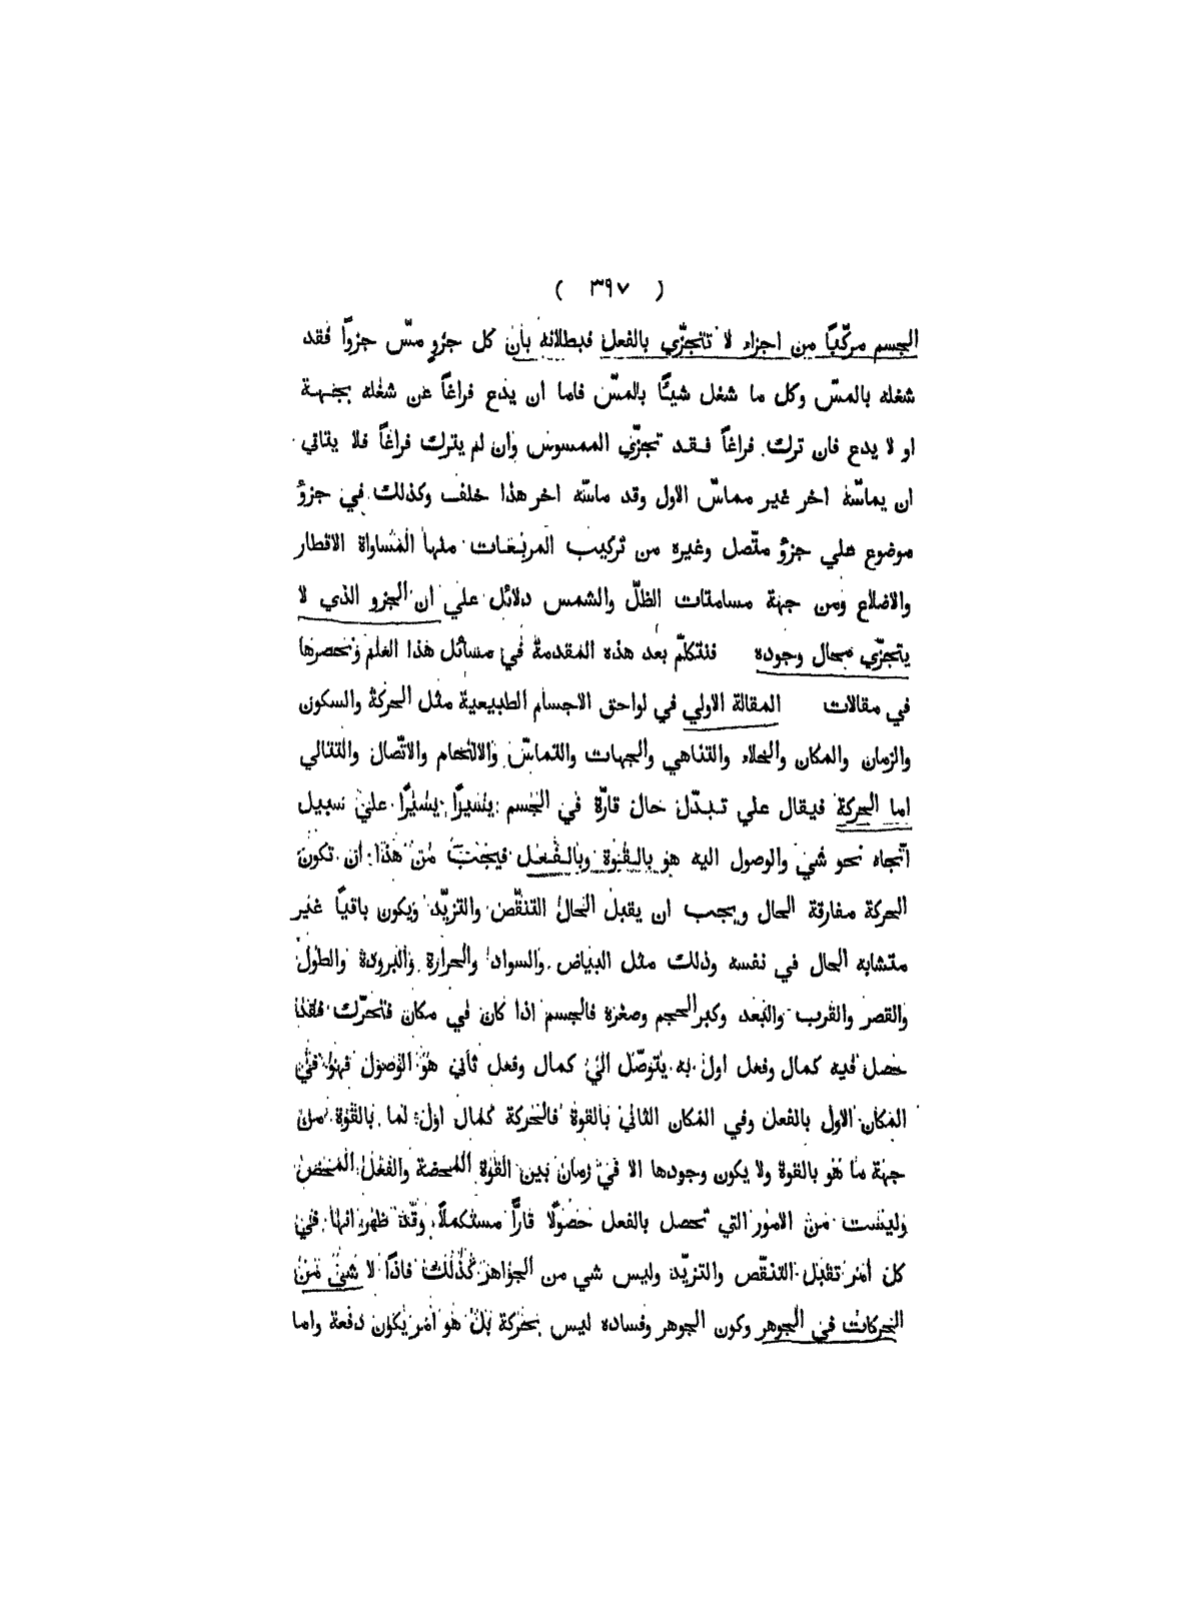 ( ٣٩٧ )
الجسم مركّبًا من اجزاء لا تتجزّي بالفعل فبطلانه بان كل جزوٍ مسّ جزوًا فقد
شغله بالمسّ وكل ما شغل شيئًا بالمسّ فاما ان يدع فراغًا عن شغله بجهة
او لا يدع فان ترك فراغًا فقد تجزّي الممسوس وان لم يترك فراغًا فلا يتاتي
ان يماسّه اخر غير مماسّ الاول وقد ماسّه اخر هذا خلف وكذلك في جزوٍ
موضوع علي جزوٍ متّصل وغيره من تركيب المربعات منها المساواة الاقطار
والاضلاع ومن جهة مسامتات الظلّ والشمس دلائل علي ان الجزو الذي لا
يتجزّي محال وجوده فنتكلّم بعد هذه المقدمة في مسائل هذا العلم ونحصرها
في مقالات المقالة الاولي في لواحق الاجسام الطبيعية مثل الحركة والسكون
والزمان والمكان والخلاء والتناهي والجهات والتماسّ والالتحام والاتّصال والتتالي
اما الحركة فيقال علي تبدّل حال قارّة في الجسم يسيرًا يسيرًا علي سبيل
اتّجاه نحو شي والوصول اليه هو بالقوة وبالفعل فيجب من هذا ان تكون
الحركة مفارقة الحال ويجب ان يقبل الحال التنقّص والتزيّد ويكون باقيًا غير
متشابه الحال في نفسه وذلك مثل البياض والسواد والحرارة والبرودة والطول
والقصر والقرب والبعد وكبر الحجم وصغره فالجسم اذا كان في مكان فتحرّك فقد
حصل فيه كمال وفعل اول به يتوصّل الي كمال وفعل ثاني هو الوصول فهو في
المكان الاول بالفعل وفي المكان الثاني بالقوة فالحركة كمال اول لما بالقوة من
جهة ما هو بالقوة ولا يكون وجودها الا في زمان بين القوة المحضة والفعل المحض
وليست من الامور التي تحصل بالفعل حصولًا قارًّا مستكملًا وقد ظهر انها في
كل امر تقبل التنقّص والتزيّد وليس شي من الجواهر كذلك فاذًا لا شي من
الحركات في الجوهر وكون الجوهر وفساده ليس بحركة بل هو امر يكون دفعة واما